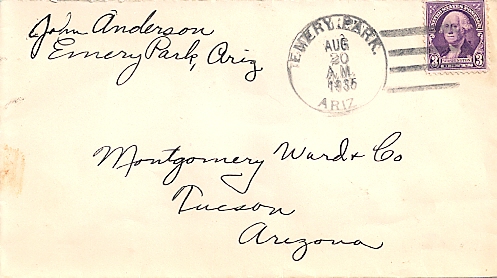 John Anderson
Emery Park, Ariz.
EMERY PARK.
AUG
20
A.M.
1935
ARIZ
3 3
Montgomery Ward & Co
Tucson
Arizona